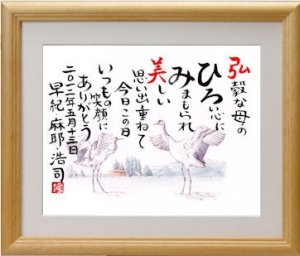 弘
穀な母の
ひろい心に
みまもられ
美しい
思い出重ねて
今日この日
いつもの笑顔に
ありがとう
二〇一二年五月十三日
早紀 麻耶 浩司